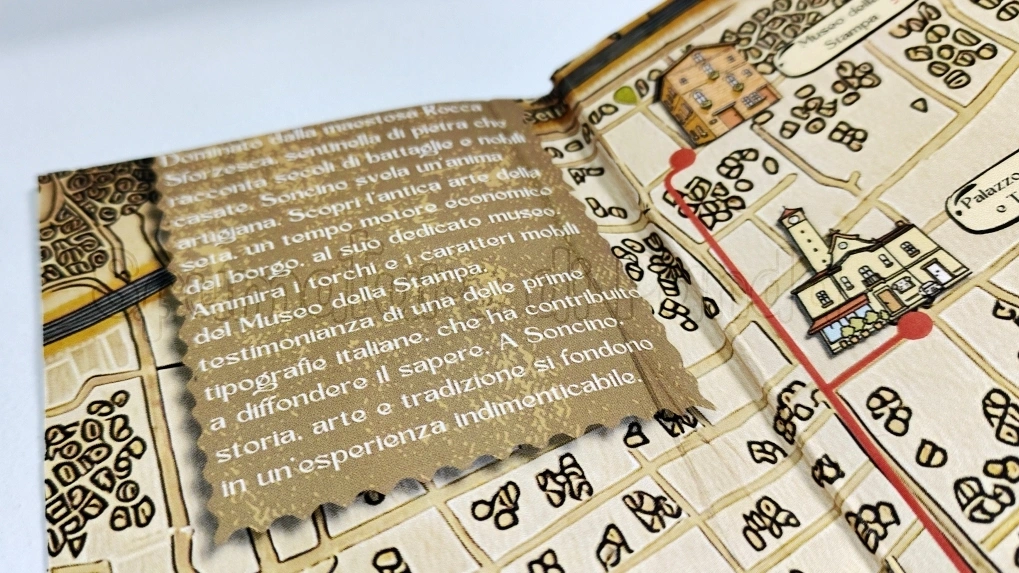 Dominato dalla maestosa Rocca
Sforzesca, sentinella di pietra che
racconta secoli di battaglie e nobili
casate, Soncino svela un'anima
artigiana. Scopri l'antica arte della
seta, un tempo motore economico
del borgo, al suo dedicato museo.
Ammira i torchi e i caratteri mobili
del Museo della Stampa,
testimonianza di una delle prime
tipografie italiane, che ha contribuito
a diffondere il sapere. A Soncino,
storia, arte e tradizione si fondono
in un'esperienza indimenticabile.
Museo della
Stampa
Palazzo
e